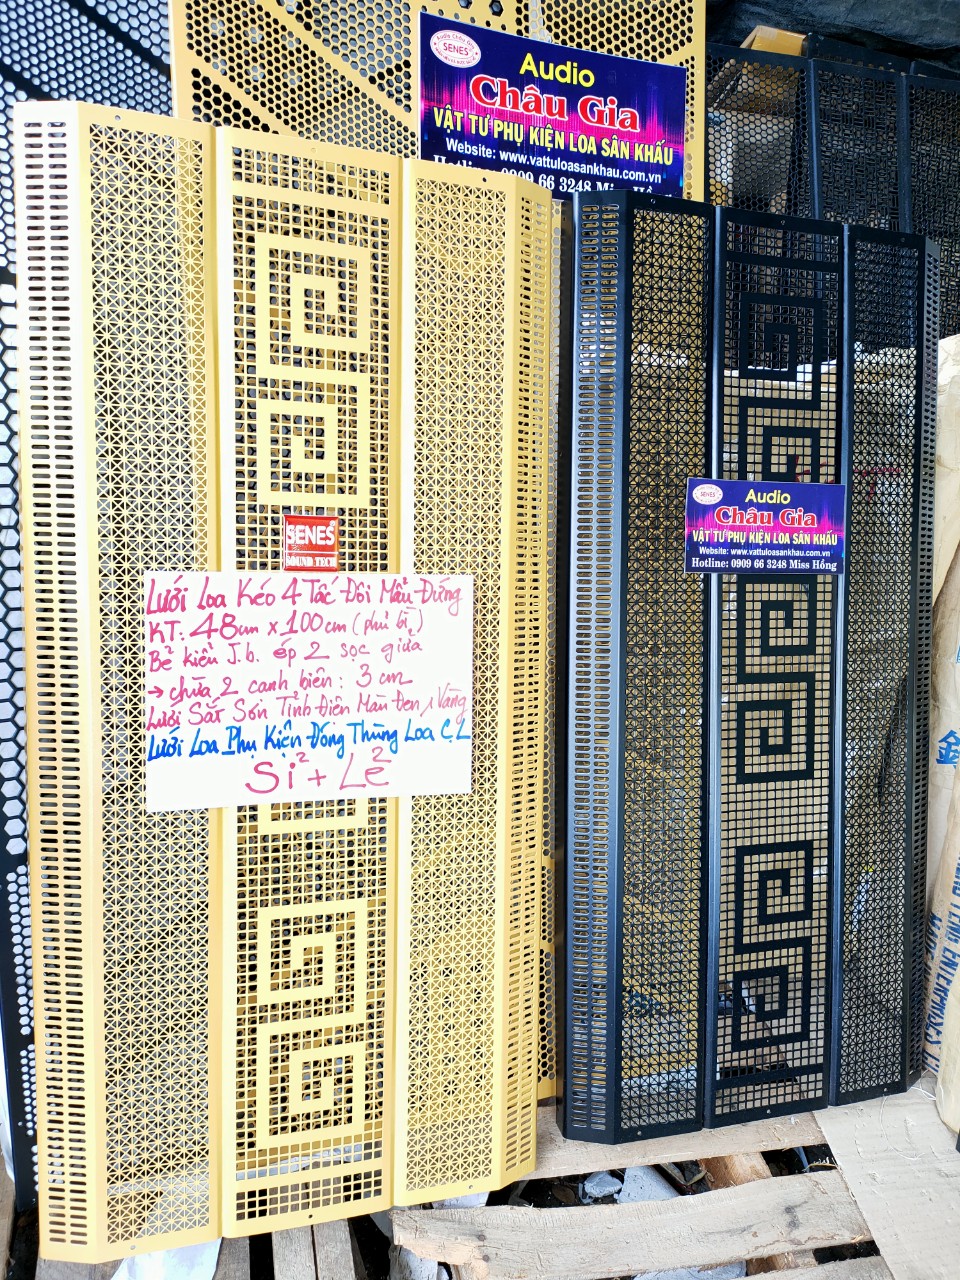 Audio Châu Gia
SENES
Audio
Châu Gia
VẬT TƯ PHỤ KIỆN LOA SÂN KHẤU
Website: www.vattuloasankhau.com.vn
0909 66 3248 Miss
SENES
Audio
Châu Gia
VẬT TƯ PHỤ KIỆN LOA SÂN KHẤU
Website: www.vattuloasankhau.com.vn
Hotline: 0909 66 3248 Miss Hồng
SENES
SOUND TECH
Lưới Loa Kéo 4 Tấc Đôi Mẫu Đứng
KT: 48cm x 100cm (phủ bì)
Bẻ kiểu J.b. ép 2 sọc giữa
→ chừa 2 cạnh biên: 3 cm
Lưới Sắt Sơn Tĩnh Điện Màu Đen, Vàng
Lưới Loa Phụ Kiện Đóng Thùng Loa C.L
Sỉ + Lẻ